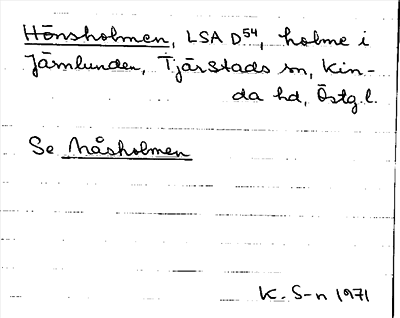 Hönsholmen, LSA D54, holme i
Järnlunden, Tjärstads sn, Kin-
da hd, Östg.l.
Se Måsholmen
K. S-n 1971